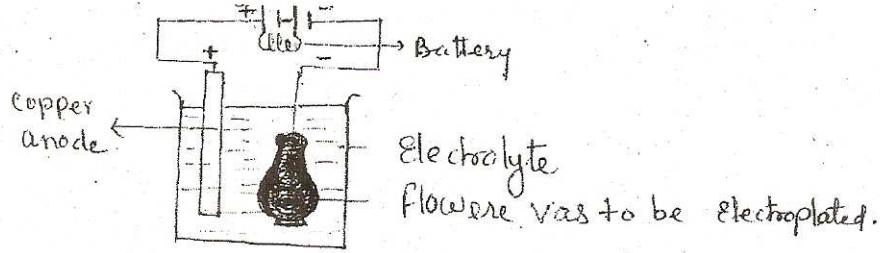 + -
+
Battery
-
copper
anode
Electrolyte
flowere vas to be Electroplated.